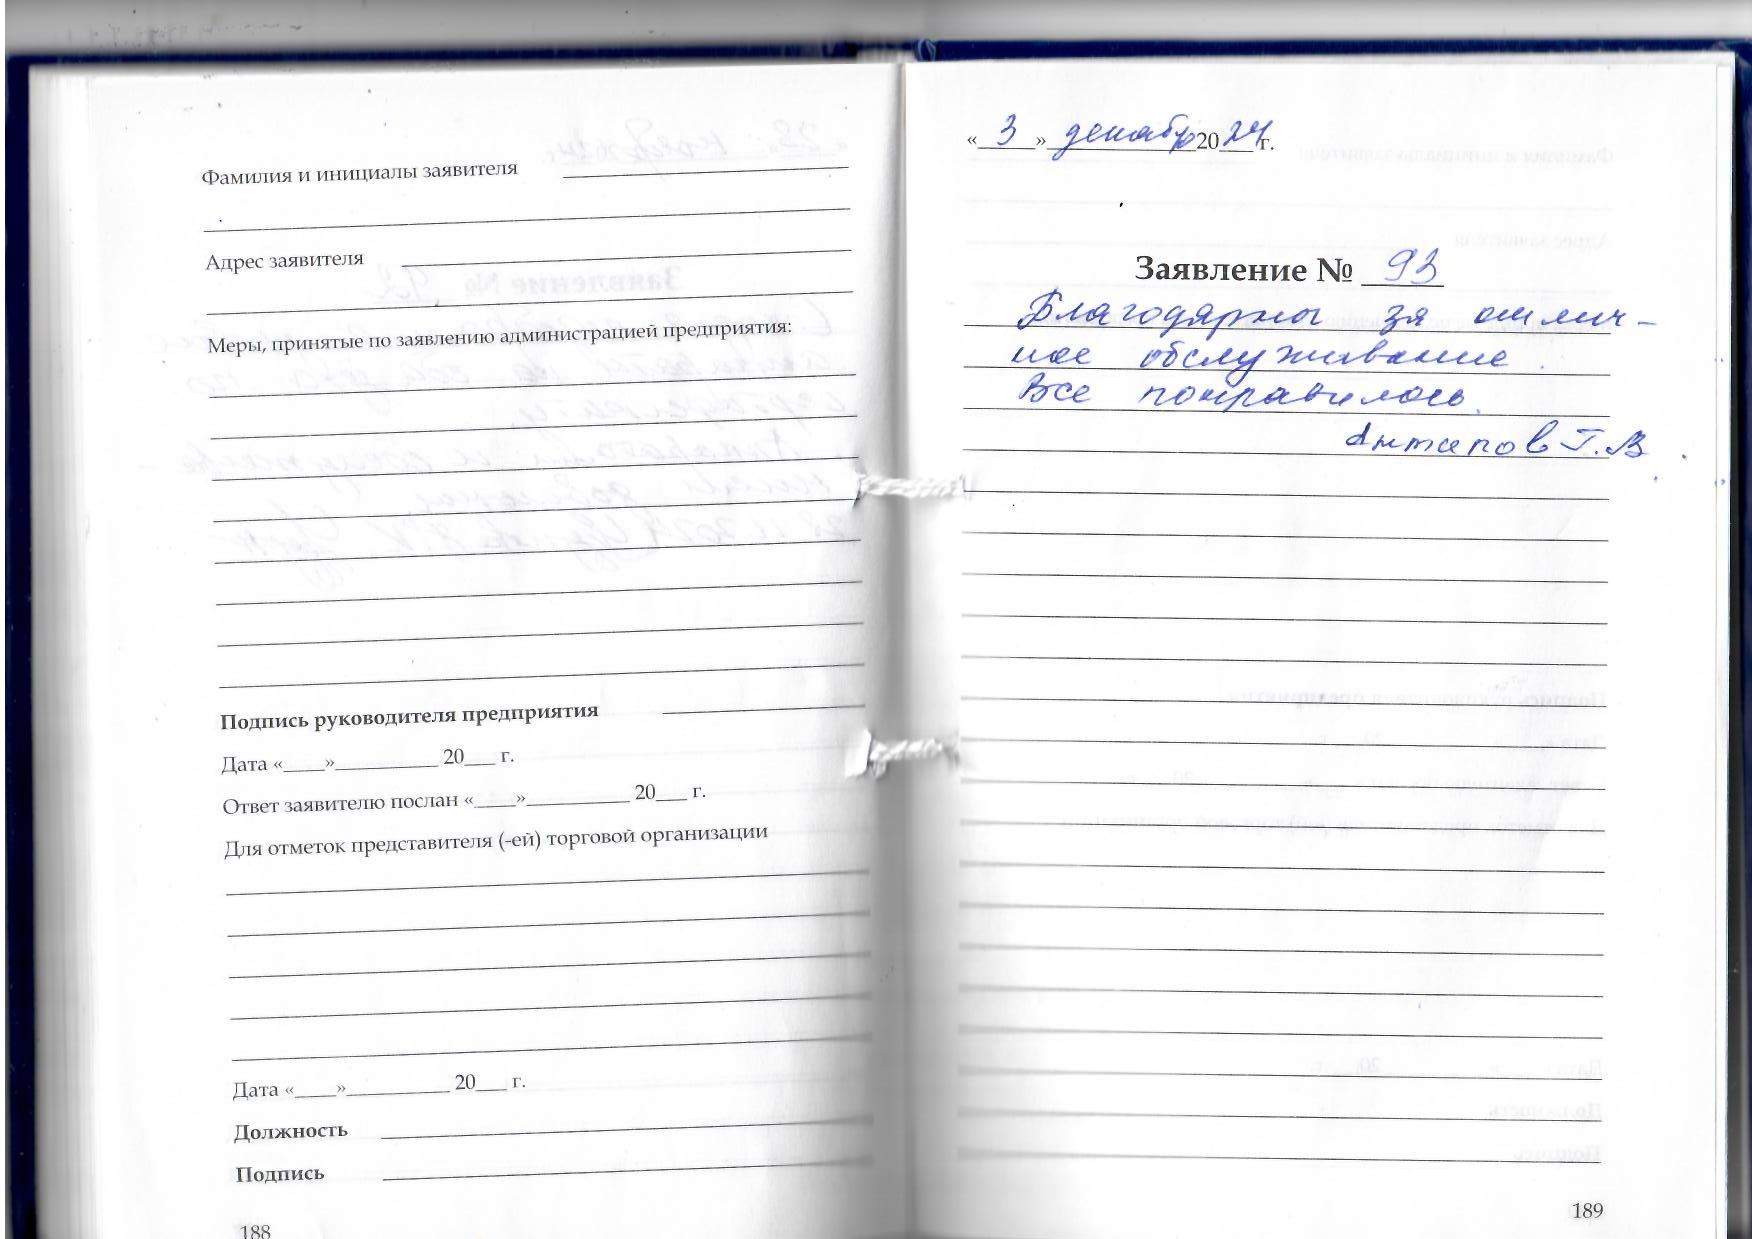 Фамилия и инициалы заявителя
Адрес заявителя
Меры, принятые по заявлению администрацией предприятия:
Подпись руководителя предприятия
Дата «____»__________ 20___ г.
Ответ заявителю послан «____»__________ 20___ г.
Для отметок представителя (-ей) торговой организации
Дата «____»__________ 20___ г.
Должность
Подпись
188
« 3 » декабр 2024 г.
Заявление № 93
Благодарны за отлич-
ное обслуживание.
Все понравилось.
Антапов Г.В.
189